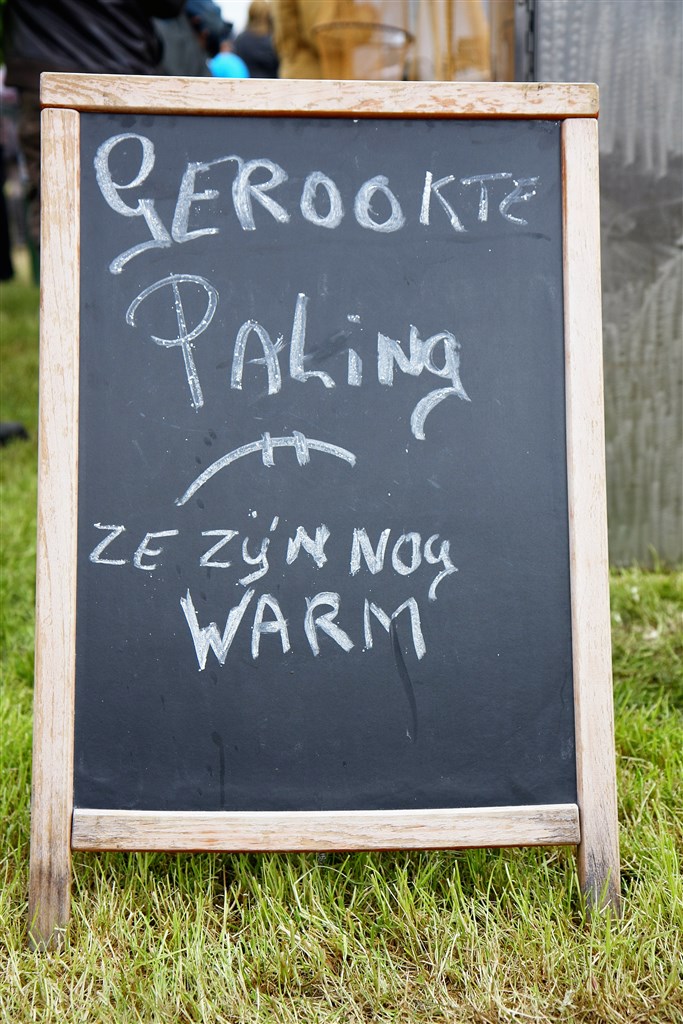 GEROOKTE
PALiNg
ZE ZÿN NOg
WARM